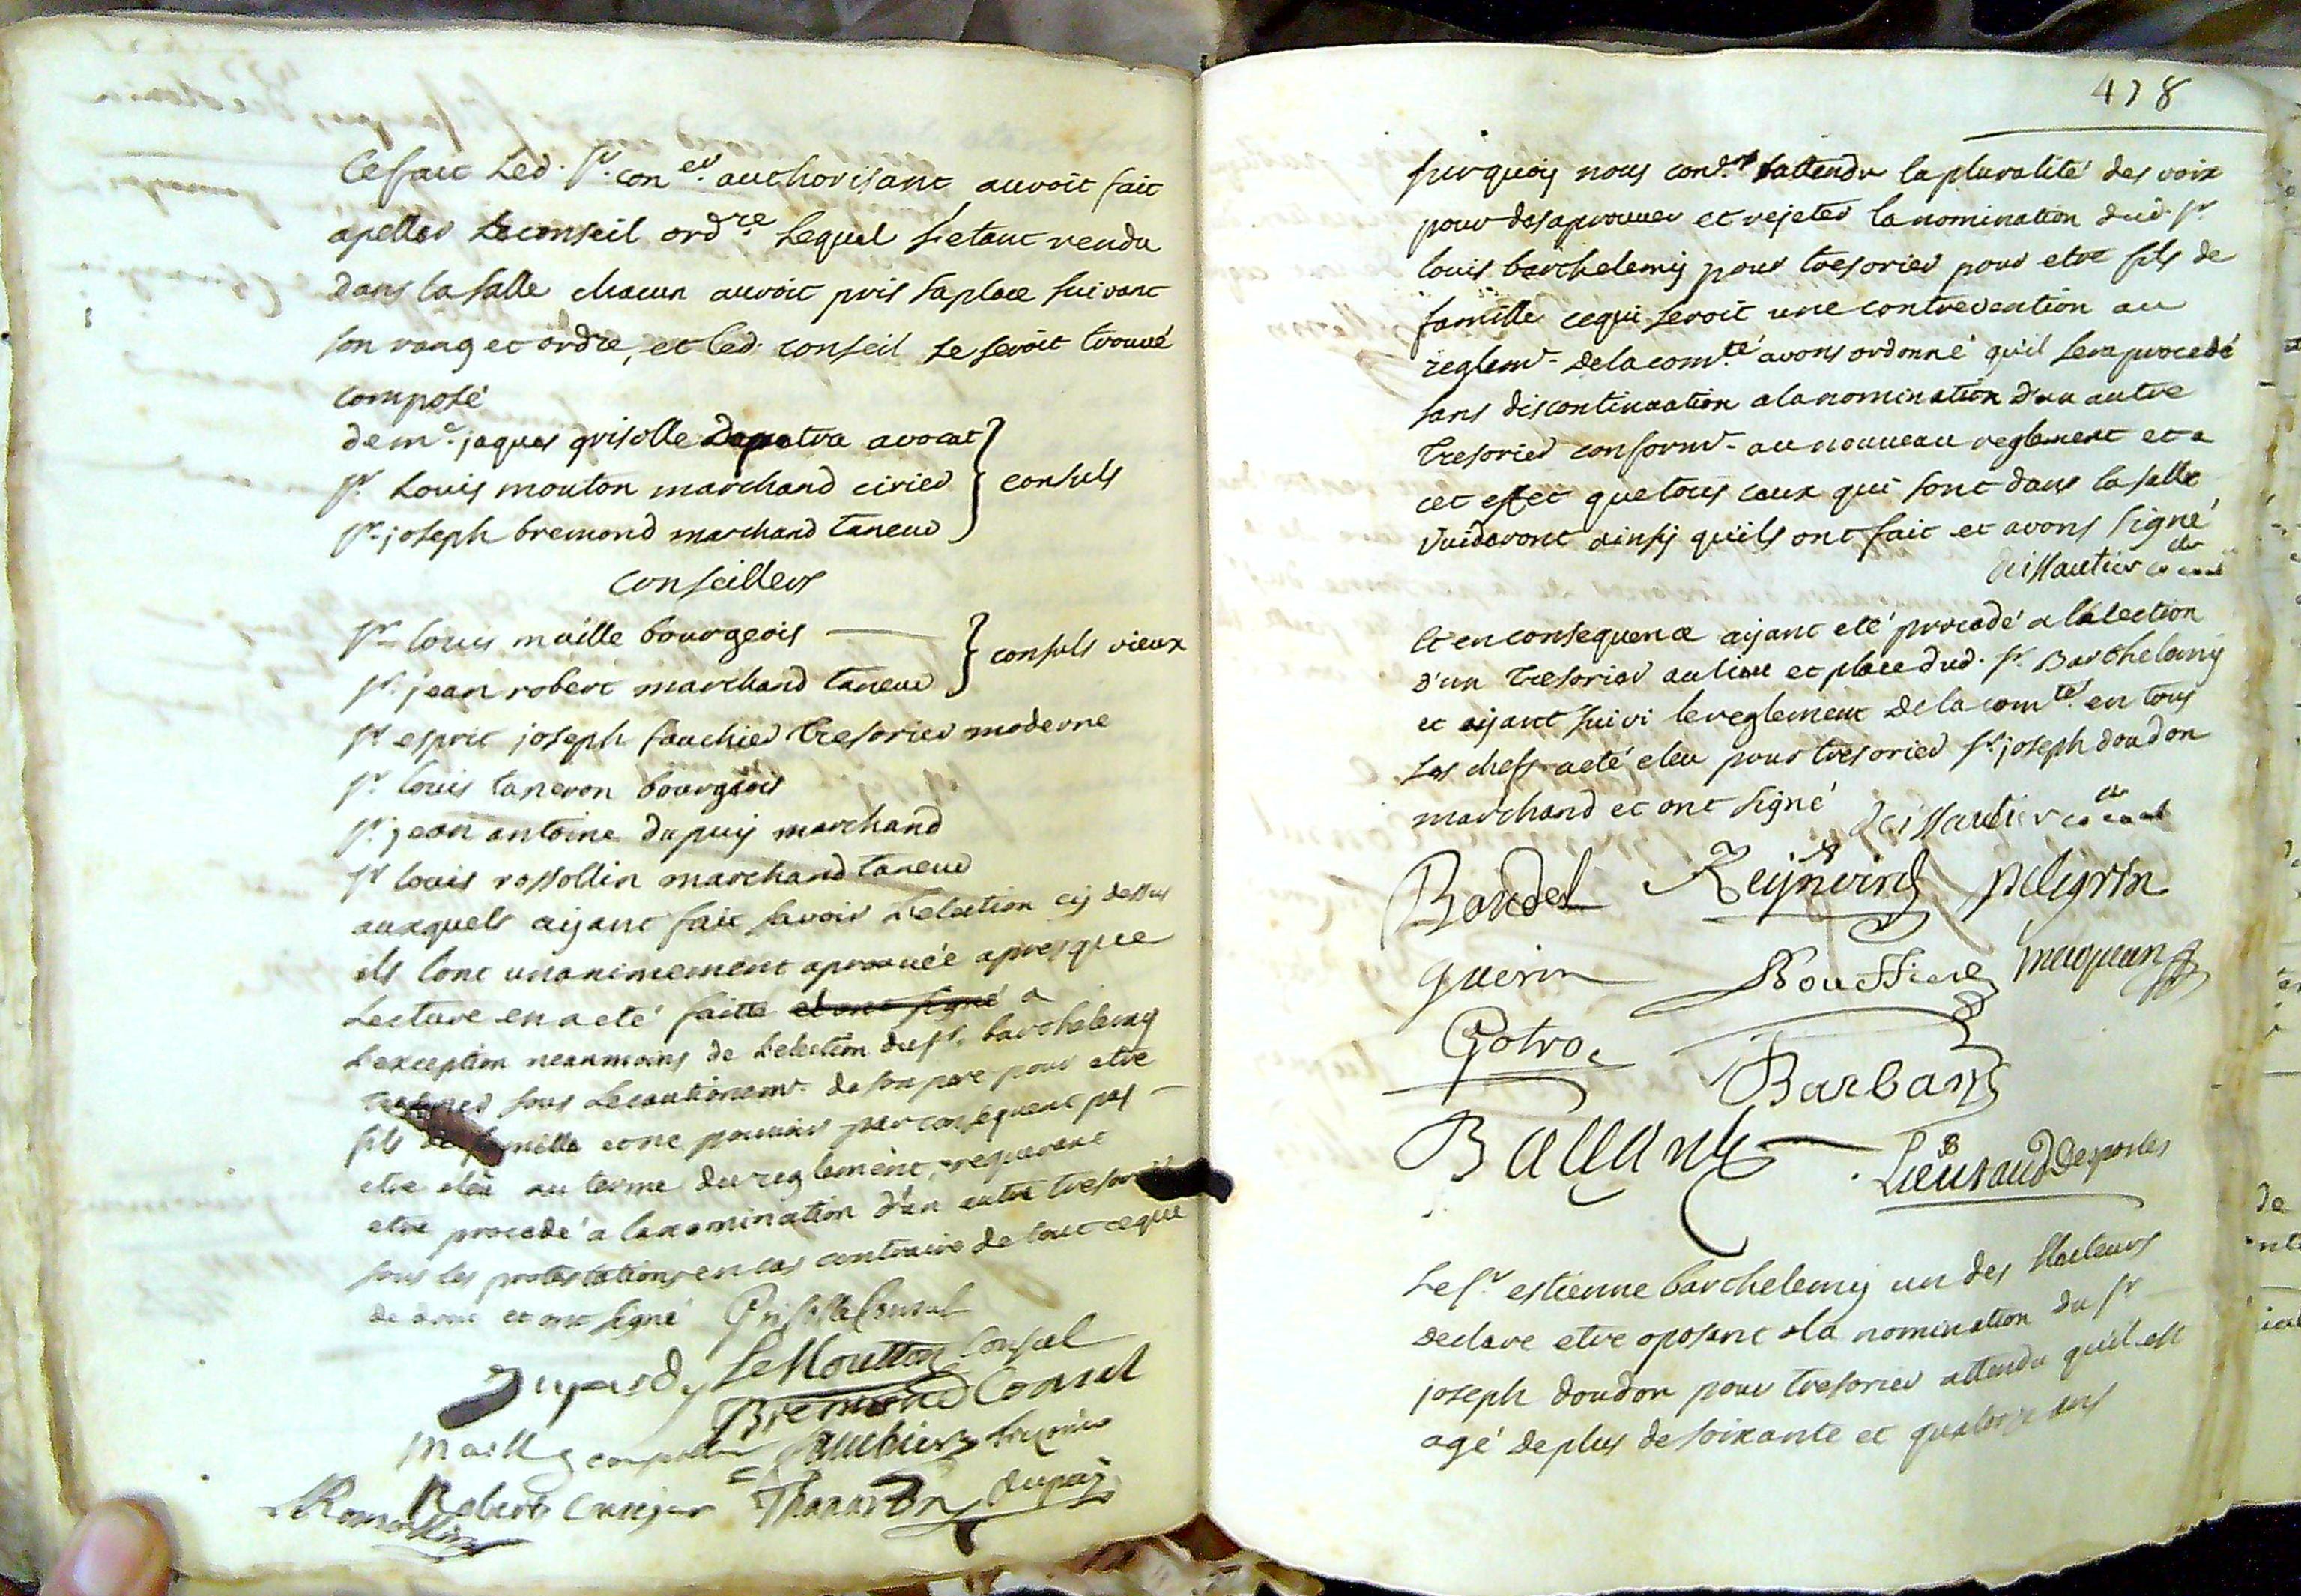 Ce fait led. sr. coner. authorisant, auroit fait
apeller le conseil ordre. lequel s'etant rendu
dans la salle chacun auroit pris sa place suivant
son rang et ordre, et led. conseil se seroit trouvé
composé
de me. jaques grisolle avocat
sr. Louis mouton marchand cirier } consuls
sr. joseph bremond marchand taneur
conseillers
sr. louis maille bourgeois
sr. jean robert marchand taneur } consuls vieux
sr. esprit joseph fauchier tresorier moderne
sr. louis taneron bourgeois
sr. jean antoine dupuy marchand
sr louis rossollin marchand taneur
auxquels aijant fait savoir l'election cij dessus
ils l'ont unanimement aprouvée apres que
lecture en a eté faitte et ont signé a
l'exception neanmoins de l'election du sr. barthelemy
tresorier sous le cautionemt. de son pere pour etre
fils de famille et ne pouvoir par consequent pas
etre eleu au terme du reglement, requerent
etre procedé a la nomination d'un autre tresorier
sous les protestations en cas contraire de tout ce que
de droit et ont signé Grisolle Consul
Le Moutton Consul
Bremond Consul
Maille fauchier tresorier
Robert Thaneron dupuy
Rossollin
478
surquoij nous attendu la pluralité des voix
pour desaprouver et rejeter la nomination dud. sr
louis barthelemij pour tresorier pour etre fils de
famille ce qui seroit une contrevention au
reglemt. de la comté. avons ordonné qu'il sera procedé
sans discontinuation a la nomination d'un autre
tresorier conformt. au nouveau reglement et a
cet effet que tous ceux qui sont dans la salle
vuideront ainsij qu'ils ont fait et avons signé
deissautier
Et en consequence aijant eté procedé a l'election
d'un tresorier au lieu et place dud. sr. Barthelemij
et aijant suivi le reglement de la comté. en tous
les chefs a eté eleu pour tresorier sr. joseph doudon
marchand et ont signé deissautier
Baudel Reijneird peligrin
guerin Rouffier maquan
Gotro Barbar
Ballant Lieutaud desportes
Le sr. estienne barthelemij un des electeurs
declare etre oposent a la nomination du sr
joseph doudon pour tresorier attendu qu'il est
agé de plus de soixante et quatorze ans